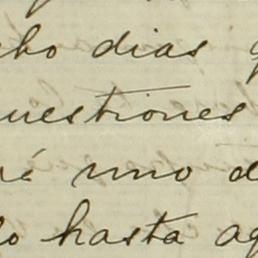 cho dias q
uestiones
é uno d
lo hasta aq